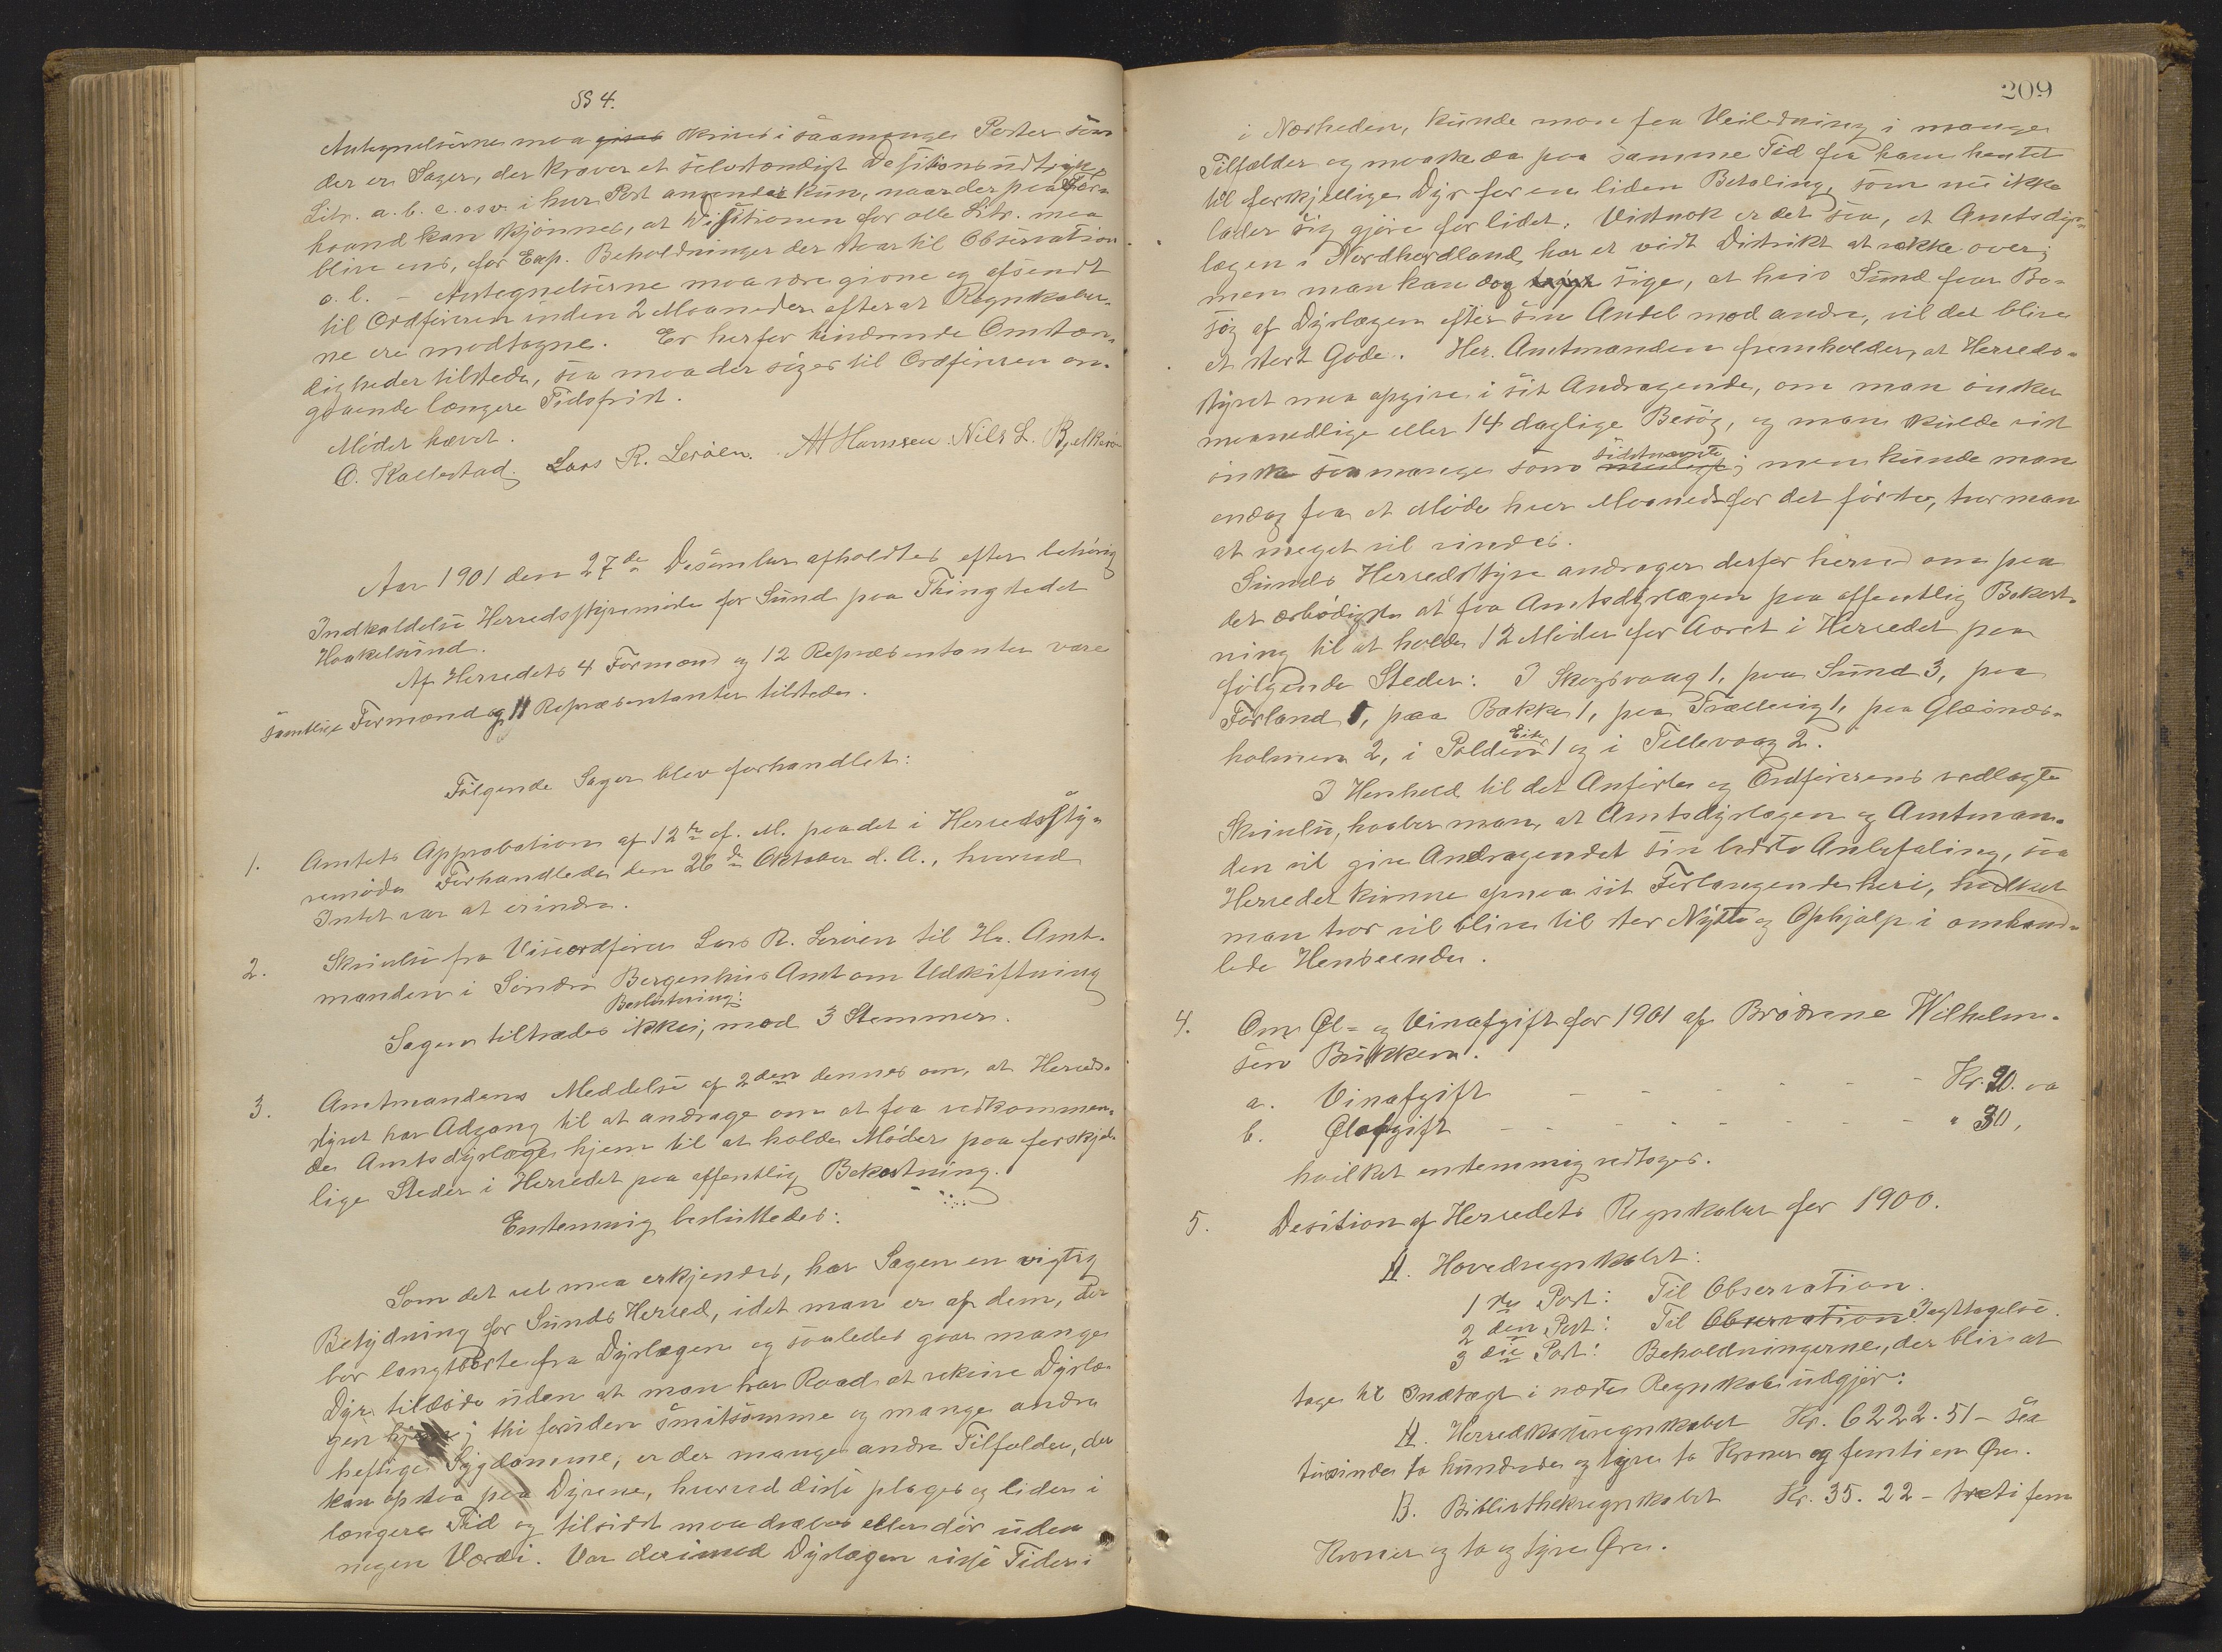 § 4.
Antegnelserne maa gives skrives i saamange Poster som
der er Sager, der kræver et selvstændigt Desitionsudtryk
Litr. a. b. c. osv. i hver Post anvendes kun, naar der paa For-
haand kan skjønnes, at Desitionen for alle Litr. maa
blive ens, for Exp. Beholdninger der staar til Observation
o. l. – Antegnelserne maa være givne og afsendt
til Ordføreren inden 2 Maaneder efter at Regnskaber-
ne ere modtagne. Er herfor hindrende Omstæn-
digheder tilstede, saa maa der siges til Ordføreren an-
gaaende længere Tidsfrist.
Mödet hævet.
O. Kallestad. Lars R. Leröen. A Hansen. Nils L. Bjelkarö
Aar 1901 den 27de Desember afholdtes efter behörig
Indkaldelse Herredsstyremöde for Sund paa Thingstedet
Haakelsund.
Af Herredets 4 Formænd og 12 Repræsentanter vare
samtlige Formænd og 11 Repræsentanter tilstede.
Fölgende Sager blev forhandlet:
1. Amtets Approbation af 12te f. M. paa det i Herredssty-
remöde Forhandlede den 26de Oktober d. A., hvorved
Intet var at erindre.
2. Skrivelse fra Viseordförer Lars R. Leröen til Hr. Amt-
manden i Söndre Bergenhus Amt om Udskiftning
Beslutning:
Sagen tiltrædes ikke, mod 3 Stemmer.
3. Amtmandens Meddelelse af 2den dennes om, at Herreds-
styret har Adgang til at andrage om at faa vedkommen-
de Amtsdyrlæge hjem til at holde Möder paa forskjel-
lige Steder i Herredet paa offentlig Bekostning.
Enstemmig besluttedes:
Som det vel maa erkjendes, har Sagen en vigtig
Betydning for Sunds Herred, idet man er af dem, der
bor langt borte fra Dyrlægen og saaledes gaar mange
Dyr tildøde uden at man har Raad at rekvire Dyrlæ-
gen hjem; thi foruden smitsomme og mange andre
heftige Sygdomme, er der mange andre Tilfælder, der
kan opstaa paa Dyrene, hvorved disse plages og lider i
længere Tid og tilsidst maa dræbes eller dör uden
nogen Værdi. Var derimod Dyrlægen visse Tider i
209
i Nærheden, kunde man faa Veiledning i mange
Tilfælder og maaske da paa samme Tid faa ham hentet
til forskjellige Dyr for en liden Betaling, som nu ikke
lader sig gjøre for lidet. Vistnok er det saa, at Amtsdyr-
lægen i Nordhordland har et vidt Distrikt at række over;
men man kan dog sige, at hvis Sund faar Be-
søg af Dyrlægen efter sin Andel mod andre, vil det blive
et stort Gode. Her. Amtmanden fremholder, at Herreds-
styret maa opgive i sit Andragende, om man önsker
maanedlige eller 14 daglige Besög, og man skulde vist
önske saamange som sidstnævnte; men kunde man
endog faa et Möde hver Maaned for det förste, tror man
at meget vil vindes.
Sunds Herredsstyre andrager derfor herved om paa
det ærbödigste at faa Amtsdyrlægen paa offentlig Bekost-
ning til at holde 12 Möder for Aaret i Herredet paa
fölgende Steder: I Skogsvaag 1, paa Sund 3, paa
Forland 1, paa Bakke 1, paa Trællevig 1, paa Glæsnæs-
holmen 2, i Eide 1 og i Tellevaag 2.
I Henhold til det Anförte og Ordförerens vedlagte
Skrivelse, haaber man, at Amtsdyrlægen og Amtman-
den vil give Andragendet sin bedste Anbefaling, saa
Herredet kunne opnaa sit Forlangende heri, hvilket
man tror vil blive til stor Nytte og Ophjælp i omhand-
lede Henseende.
4. Om Øl- og Vinafgift for 1901 af Brödrene Wilhelm-
sen Bukken.
a. Vinafgift – – – – – – Kr. 90. oo
b. Ølafgift – – – – – – – – " 30,
hvilket enstemmig vedtages.
5. Desition af Herredets Regnskaber for 1900.
A. Hovedregnskabet:
1ste Post: Til Observation.
2den Post: Til Observation Iagttagelse.
3die Post: Beholdningerne, der bliver at
tage til Indtægt i næste Regnskab udgjör:
A. Herredkasseregnskabet Kr. 6222.51 – sex
tusinde to hundrede og tyve to Kroner og femti en Øre.
B. Bibliothekregnskabet Kr. 35.22 – treti fem
Kroner og to og tyve Øre.